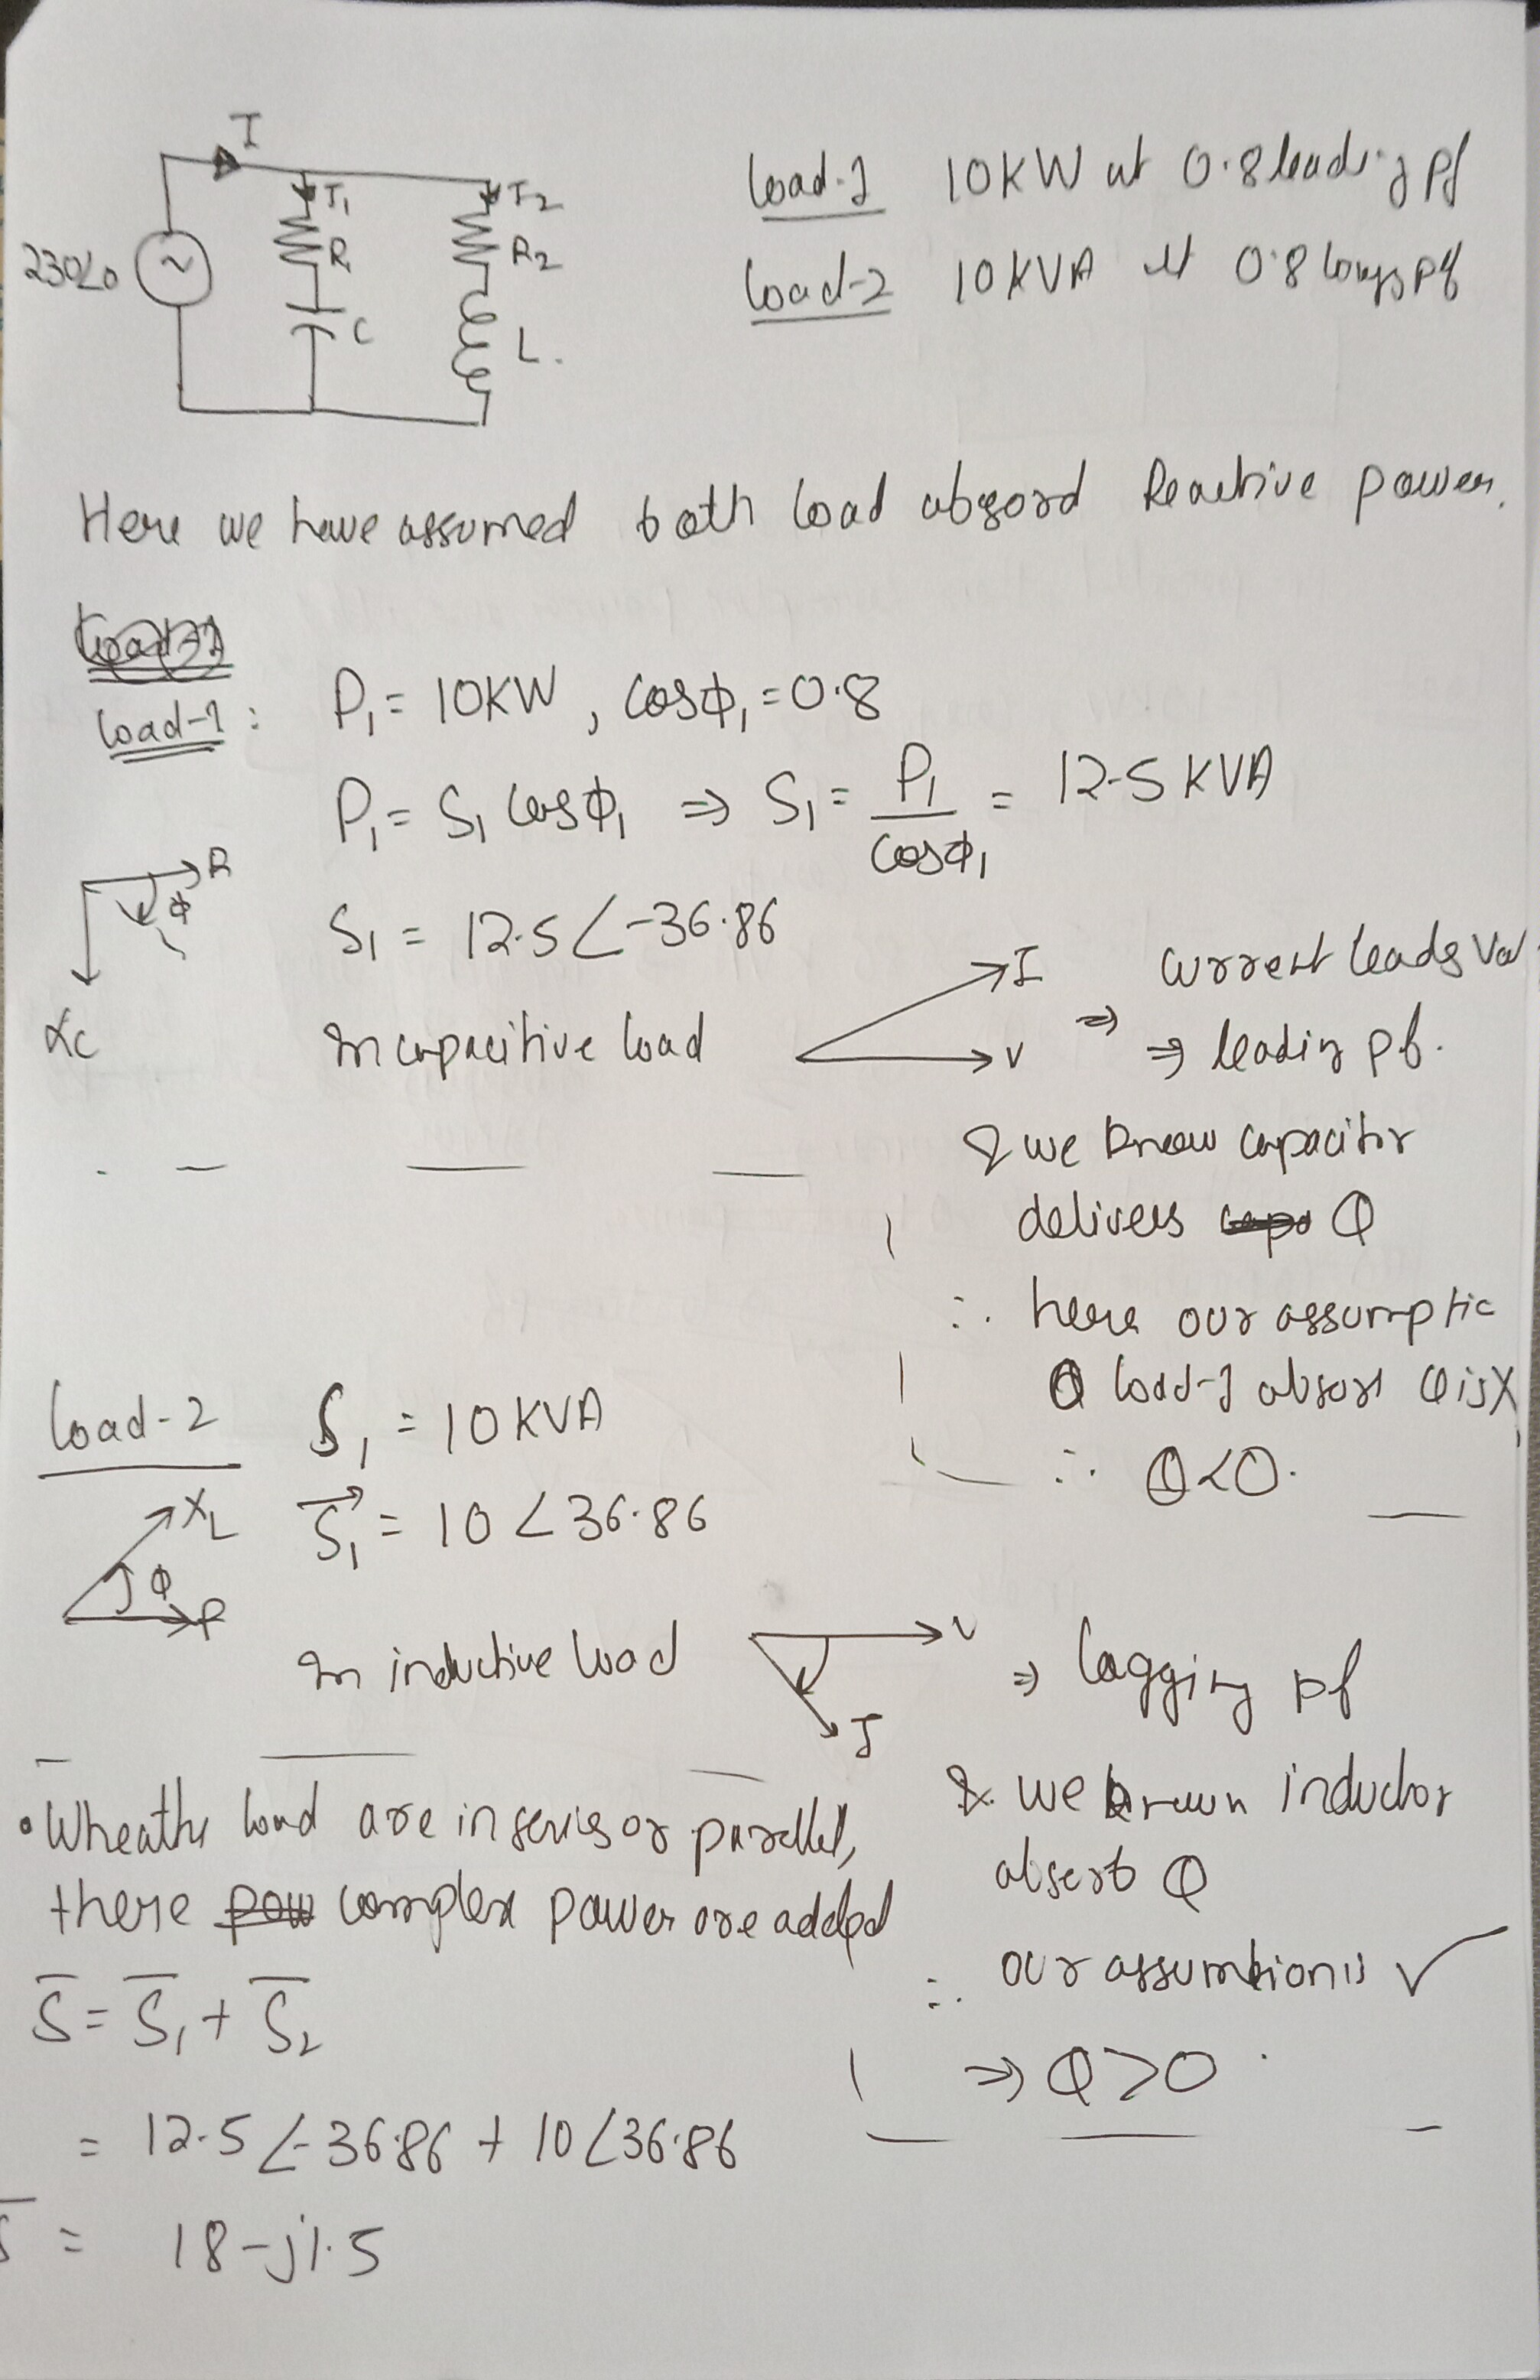 I
I₁ I₂
230∠0 R R₂
C L.
Load-1 10KW at 0.8 leading pf
Load-2 10KVA at 0.8 lagg pf
Here we have assumed both load absord Reactive power.
Load-1 : P₁ = 10KW , cosϕ₁ = 0.8
P₁ = S₁ cosϕ₁ ⇒ S₁ = P₁/cosϕ₁ = 12.5 KVA
R
ϕ
Xc
S₁ = 12.5 ∠-36.86
In capacitive load
I
V
⇒ current leads Vol
⇒ leading pf.
& we know capacitor
delivers Q
∴ here our assumptio
load-1 absorb Q is X
∴ Q<0.
Load-2 S₁ = 10KVA
S₁ = 10∠36.86
XL
ϕ
R
In inductive load
V
I
⇒ lagging pf
& we known inductor
absorb Q
∴ our assumtion is ✓
⇒ Q>0.
• Wheathr load are in series or parallel,
there complex power are added
S̅ = S̅₁ + S̅₂
= 12.5∠-36.86 + 10∠36.86
S̅ = 18-j1.5